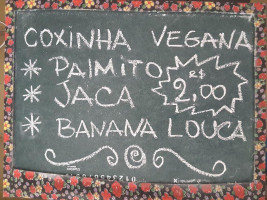 COXINHA VEGANA
* PALMITO
R$
2,00
* JACA
* BANANA LOUCA